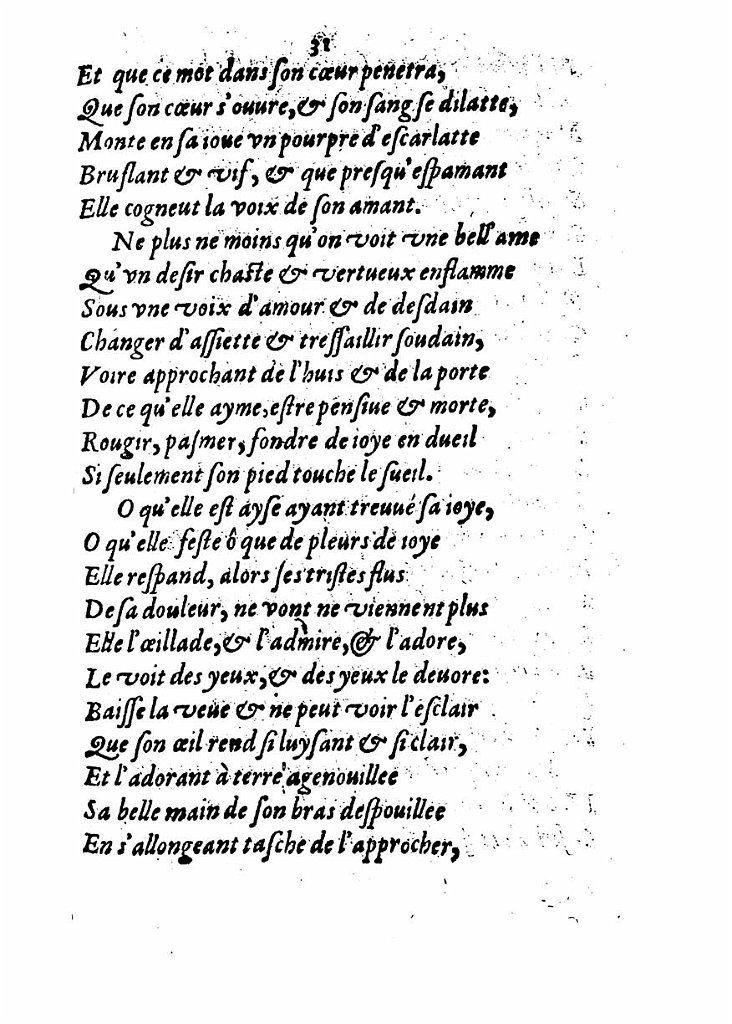 31
Et que ce mot dans ſon cœur penetra,
Que ſon cœur s'ouure, & ſon ſang ſe dilatte,
Monte en ſa ioue vn pourpre d'eſcarlatte
Bruſlant & vif, & que preſqu'eſpamant
Elle cogneut la voix de ſon amant.
Ne plus ne moins qu'on voit vne bell' ame
Qu'vn deſir chaſte & vertueux enflamme
Sous vne voix d'amour & de deſdain
Changer d'aſſiette & treſſaillir ſoudain,
Voire approchant de l'huis & de la porte
De ce qu'elle ayme, eſtre penſiue & morte,
Rougir, paſmer, fondre de ioye en dueil
Si ſeulement ſon pied touche le ſueil.
O qu'elle eſt ayſe ayant treuué ſa ioye,
O qu'elle feſte ô que de pleurs de ioye
Elle reſpand, alors ſes triſtes flus
De ſa douleur, ne vont ne viennent plus
Elle l'œillade, & l'admire, & l'adore,
Le voit des yeux, & des yeux le deuore:
Baiſſe la veue & ne peut voir l'eſclair
Que ſon œil rend ſi luyſant & ſi clair,
Et l'adorant à terre agenouillee
Sa belle main de ſon bras deſpouillee
En s'allongeant taſche de l'approcher,